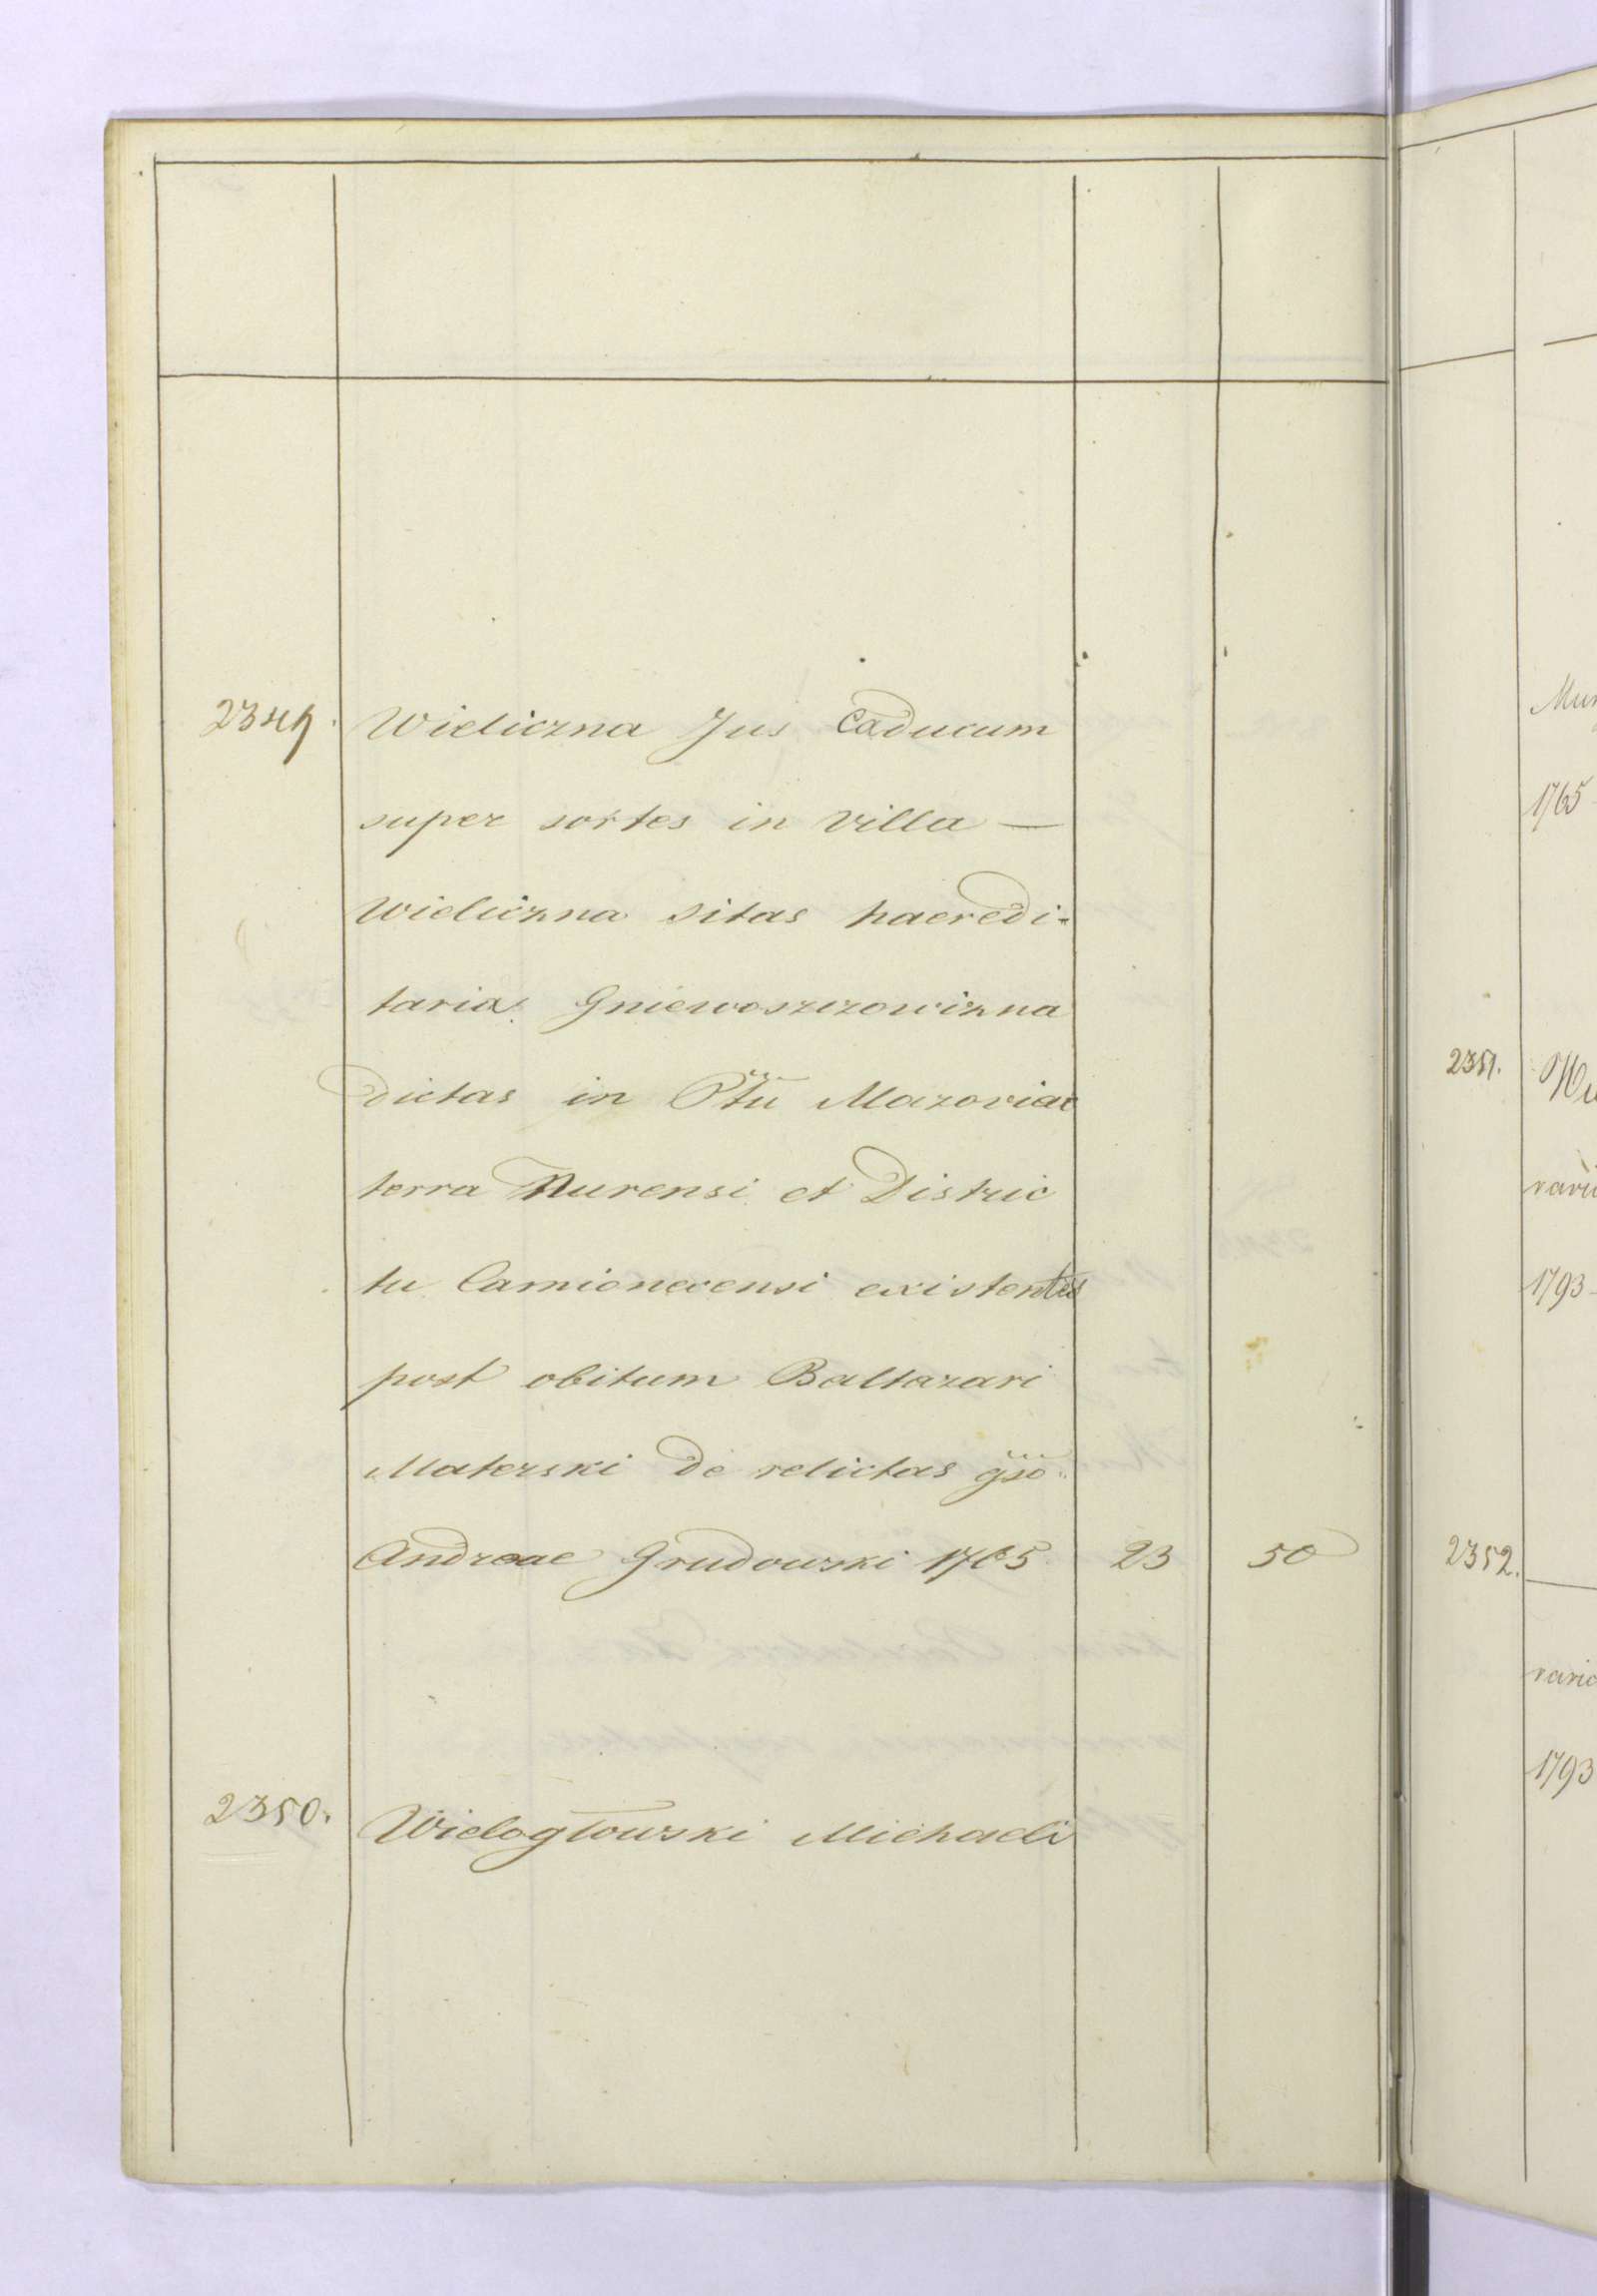 2349. Wieliczna Jus Caducum
super sortes in villa —
Wieliczna sitas haeredi=
tarias Gniewoszczowizna
dictas in Pttu Mazoviae
terra Nurensi et Distric
tu Camionecensi existentes
post obitum Baltazari
Materski de relictas gso
Andreae Grudowski 1765 23 50
2350. Wielogłowski Michaeli
1765
2351.
1793
2352.
1793